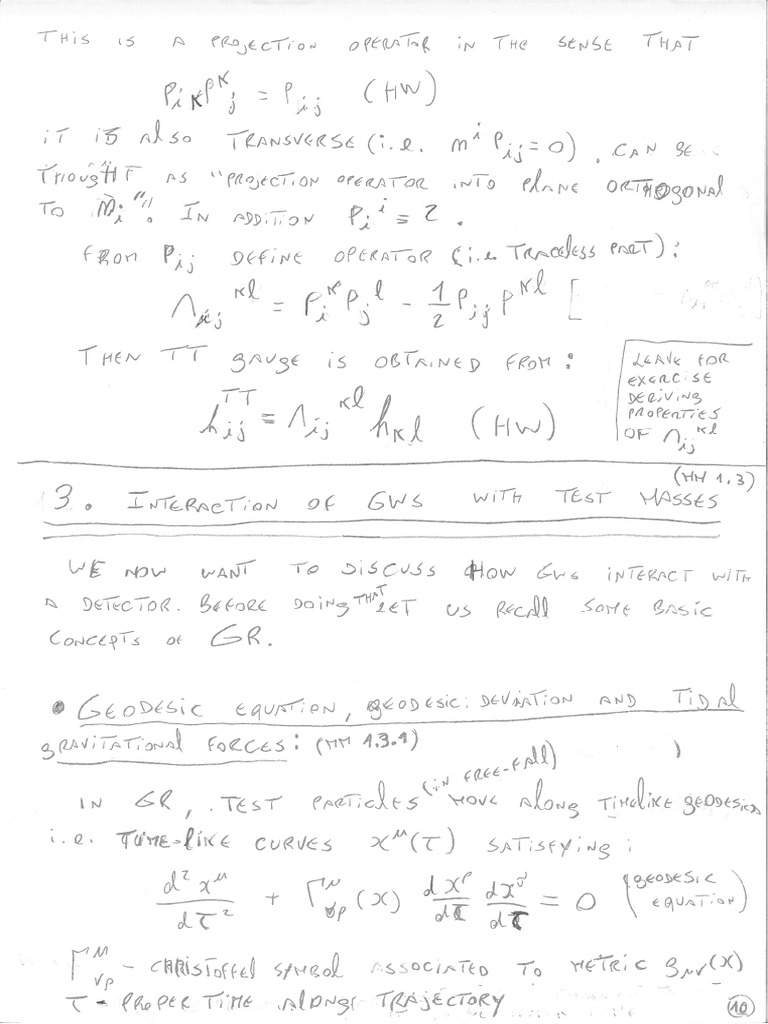 THIS IS A PROJECTION OPERATOR IN THE SENSE THAT
P_{ik} P^k_j = P_{ij} (HW)
IT IS ALSO TRANSVERSE (i.e. n^i P_{ij} = 0). CAN BE
THOUGHT AS "PROJECTION OPERATOR INTO PLANE ORTHOGONAL
TO n_i". IN ADDITION P_i^i = 2.
FROM P_{ij} DEFINE OPERATOR (i.e. TRACELESS PART):
Λ_{ij}^{kl} = P_i^k P_j^l - 1/2 P_{ij} P^{kl} [
THEN TT GAUGE IS OBTAINED FROM:
h_{ij}^{TT} = Λ_{ij}^{kl} h_{kl} (HW)
LEAVE FOR
EXERCISE
DERIVING
PROPERTIES
OF Λ_{ij}^{kl}
(MM 1.3)
3. INTERACTION OF GWS WITH TEST MASSES
WE NOW WANT TO DISCUSS HOW GWS INTERACT WITH
A DETECTOR. BEFORE DOING THAT LET US RECALL SOME BASIC
CONCEPTS OF GR.
• GEODESIC EQUATION, GEODESIC DEVIATION AND TIDAL
GRAVITATIONAL FORCES: (MM 1.3.1)
IN GR, TEST PARTICLES (IN FREE-FALL) MOVE ALONG TIMELIKE GEODESICS
i.e. TIME-LIKE CURVES x^μ(τ) SATISFYING:
d²x^μ/dτ² + Γ^μ_{νρ}(x) dx^ρ/dτ dx^ν/dτ = 0 (GEODESIC EQUATION)
Γ^μ_{νρ} - CHRISTOFFEL SYMBOL ASSOCIATED TO METRIC g_{μν}(x)
τ - PROPER TIME ALONG TRAJECTORY
10